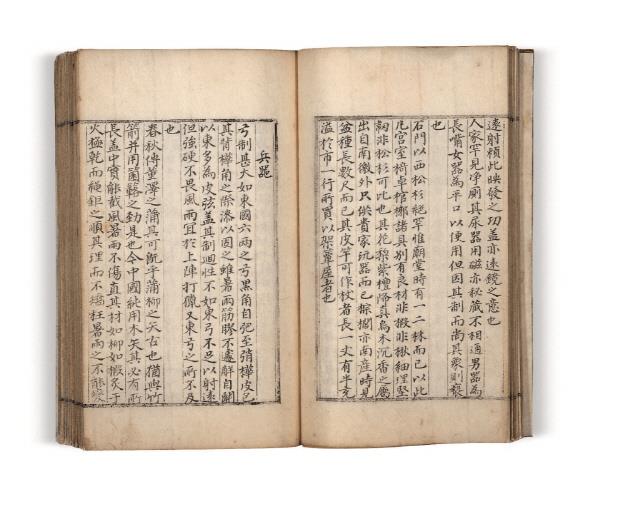 遠射頼此映發之功盖亦遠鏡之意也
人家罕見净厠其尿器用磁亦秘藏不相通男器為
長嘴女器為平口以便用但因其制而尚其象則褻
也
石門以西松杉絶罕惟廟堂時有一二株而已以此
凡宮室椅卓棺槨諸具別有良材非椴非楸細理堅
靭非松杉可比也其花梨紫檀降真烏木沉香之屬
出自南徼外只供貴家玩器而已棕櫚亦南産時見
盆種長數尺而已其皮竿可作杖者長一丈有半充
溢於市一行所買以架簟屋者也
兵器
弓制甚大如東國六兩之弓黒角自弝至弰樺皮包
其背樺角之際漆以固之雖暑雨筋膠不遽解自闕
以東多為皮弦盖其制迴性不如東弓不足以射遠
但強硬不畏風雨宜於上陣打獵又東弓之所不及
也
春秋傳董澤之蒲其可旣乎蒲柳之矢古也猶與竹
箭并用箘簵之勁是也今中國純用木矢其必有所
長盖中實能截風暑雨不傷直其材如柳如椴炙于
火極乾而繩鉅之順其理而不矯枉暑雨之不能